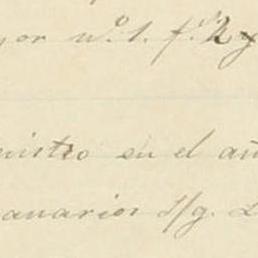 yor nº. 1. fº. 2 y
nistro en el añ
anarios S/g. L